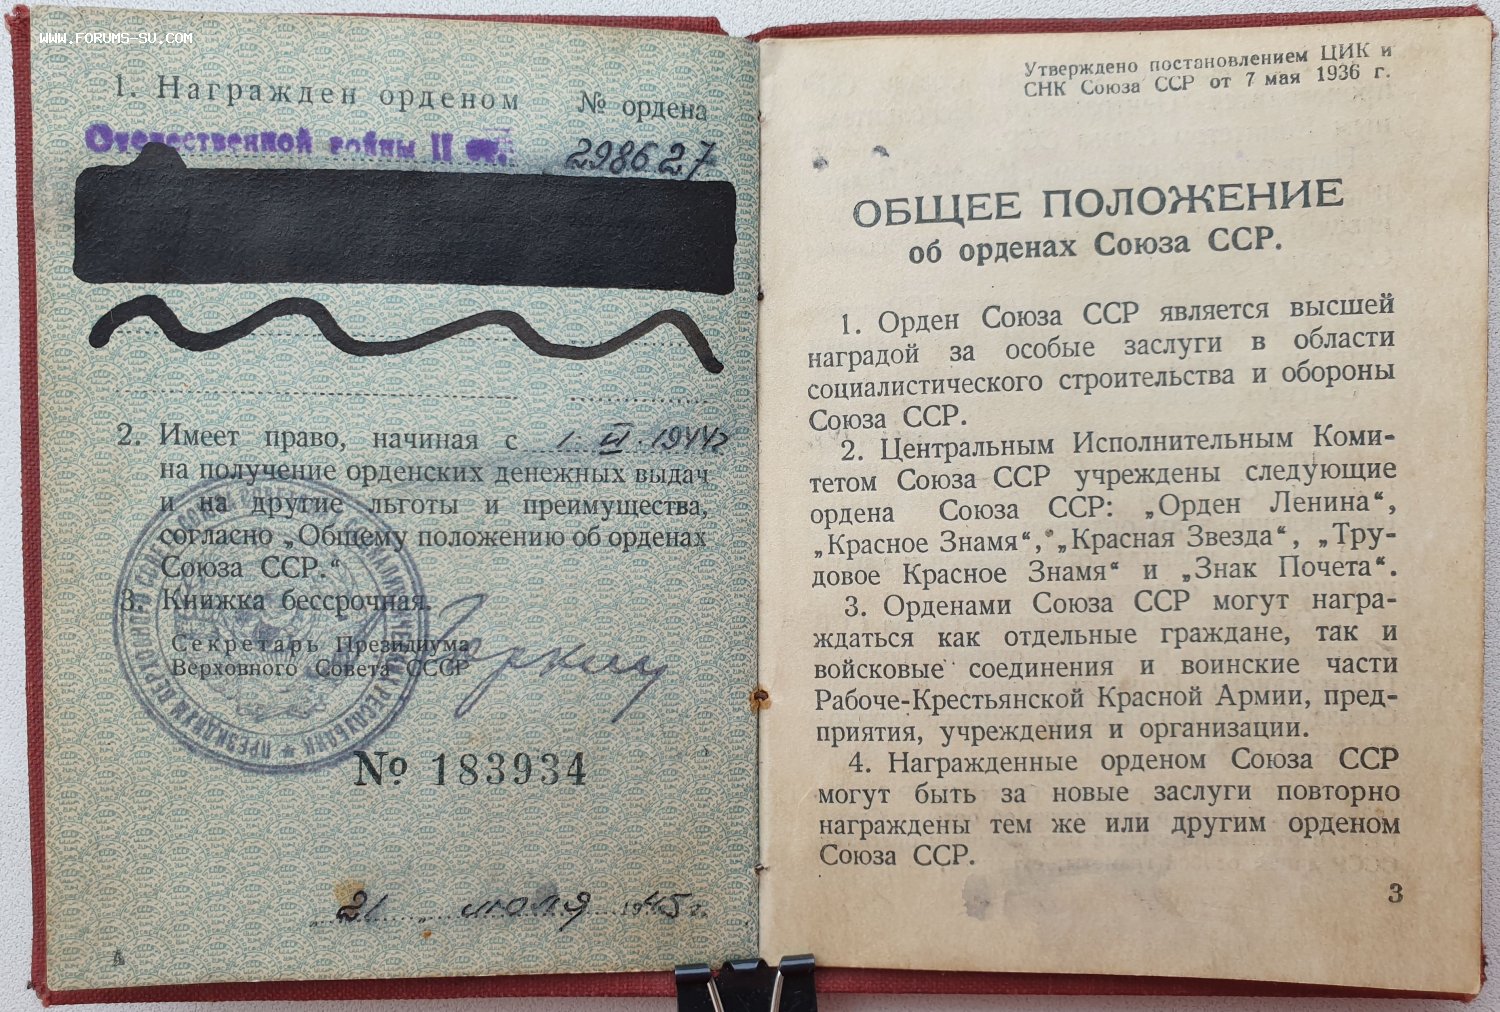 WWW.FORUMS-SU.COM
1. Награжден орденом № ордена
Отечественной войны II ст. 298627
2. Имеет право, начиная с 1. VI. 1944г
на получение орденских денежных выдач
и на другие льготы и преимущества,
согласно „Общему положению об орденах
Союза ССР.“
3. Книжка бессрочная.
Секретарь Президиума
Верховного Совета СССР
№ 183934
21 июля 1945 г.
А
Утверждено постановлением ЦИК и
СНК Союза ССР от 7 мая 1936 г.
ОБЩЕЕ ПОЛОЖЕНИЕ
об орденах Союза ССР.
1. Орден Союза ССР является высшей
наградой за особые заслуги в области
социалистического строительства и обороны
Союза ССР.
2. Центральным Исполнительным Коми-
тетом Союза ССР учреждены следующие
ордена Союза ССР: „Орден Ленина“,
„Красное Знамя“, „Красная Звезда“, „Тру-
довое Красное Знамя“ и „Знак Почета“.
3. Орденами Союза ССР могут награ-
ждаться как отдельные граждане, так и
войсковые соединения и воинские части
Рабоче-Крестьянской Красной Армии, пред-
приятия, учреждения и организации.
4. Награжденные орденом Союза ССР
могут быть за новые заслуги повторно
награждены тем же или другим орденом
Союза ССР.
3